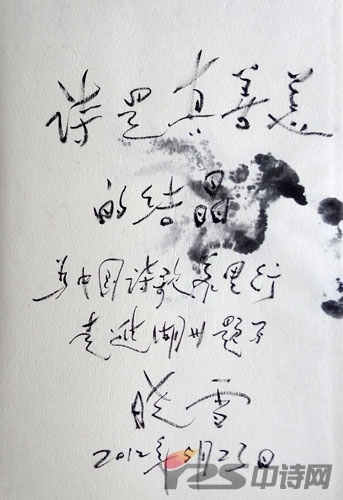 诗是真善美
的结晶
为中国诗歌萬里行
走进潮州题下
晓雪
2012年5月23日
中诗网